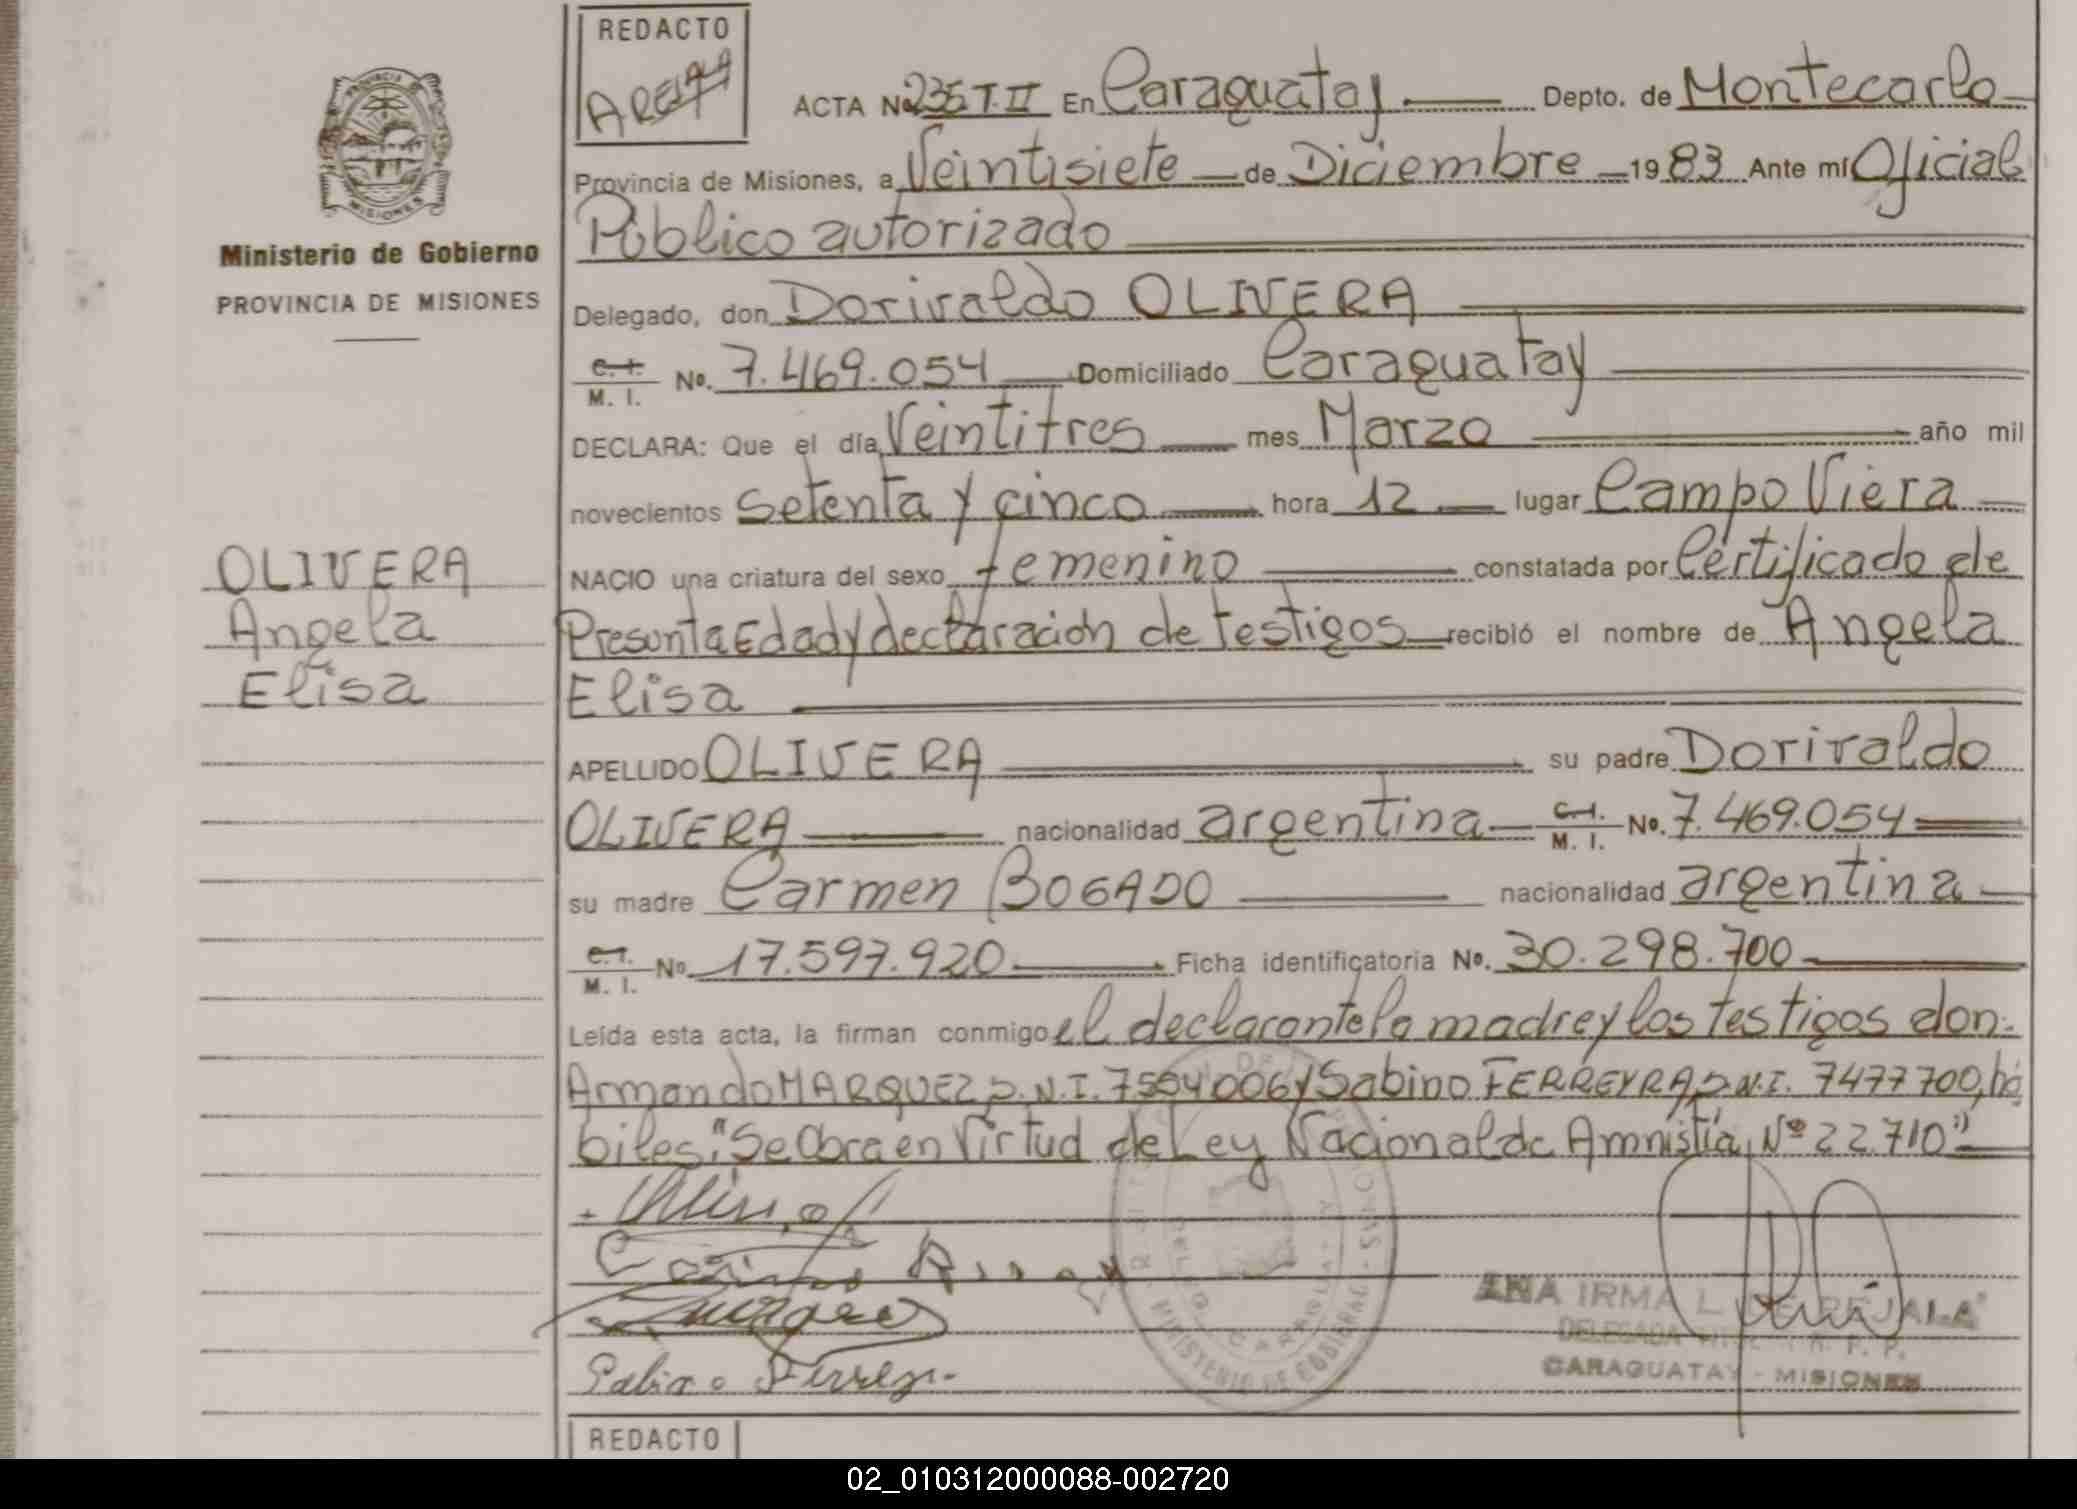 REDACTO
ARESTA
ACTA No 235 T.II En Caraguatay Depto. de Montecarlo
Provincia de Misiones, a Veintisiete de Diciembre 1983 Ante mí Oficial
Público autorizado
Ministerio de Gobierno
PROVINCIA DE MISIONES
Delegado, don Dorivaldo OLIVERA
C.I. M. I. No. 7.469.054 Domiciliado Caraguatay
DECLARA: Que el día Veintitres mes Marzo año mil
novecientos setenta y cinco hora 12 lugar Campo Viera
NACIO una criatura del sexo femenino constatada por Certificado de
Presunta Edad y declaración de testigos recibió el nombre de Angela
Elisa
OLIVERA
Angela
Elisa
APELLIDO OLIVERA su padre Dorivaldo
OLIVERA nacionalidad argentina C.I. M. I. No. 7.469.054
su madre Carmen BOGADO nacionalidad argentina
C.I. M. I. No 17.597.920 Ficha identificatoria No. 30.298.700
Leída esta acta, la firman conmigo el declarante la madre y los testigos don:
Armando MARQUEZ D.N.I. 7504006 y Sabino FERREYRA, D.N.I. 7477700, há
biles. "Se Obra en Virtud de Ley Nacional de Amnistía, Nº 22.710"
MINISTERIO DE GOBIERNO
CARAGUATAY
ANA IRMA L. DE REJALA
DELEGADA
CARAGUATAY - MISIONES
REDACTO
02_010312000088-002720